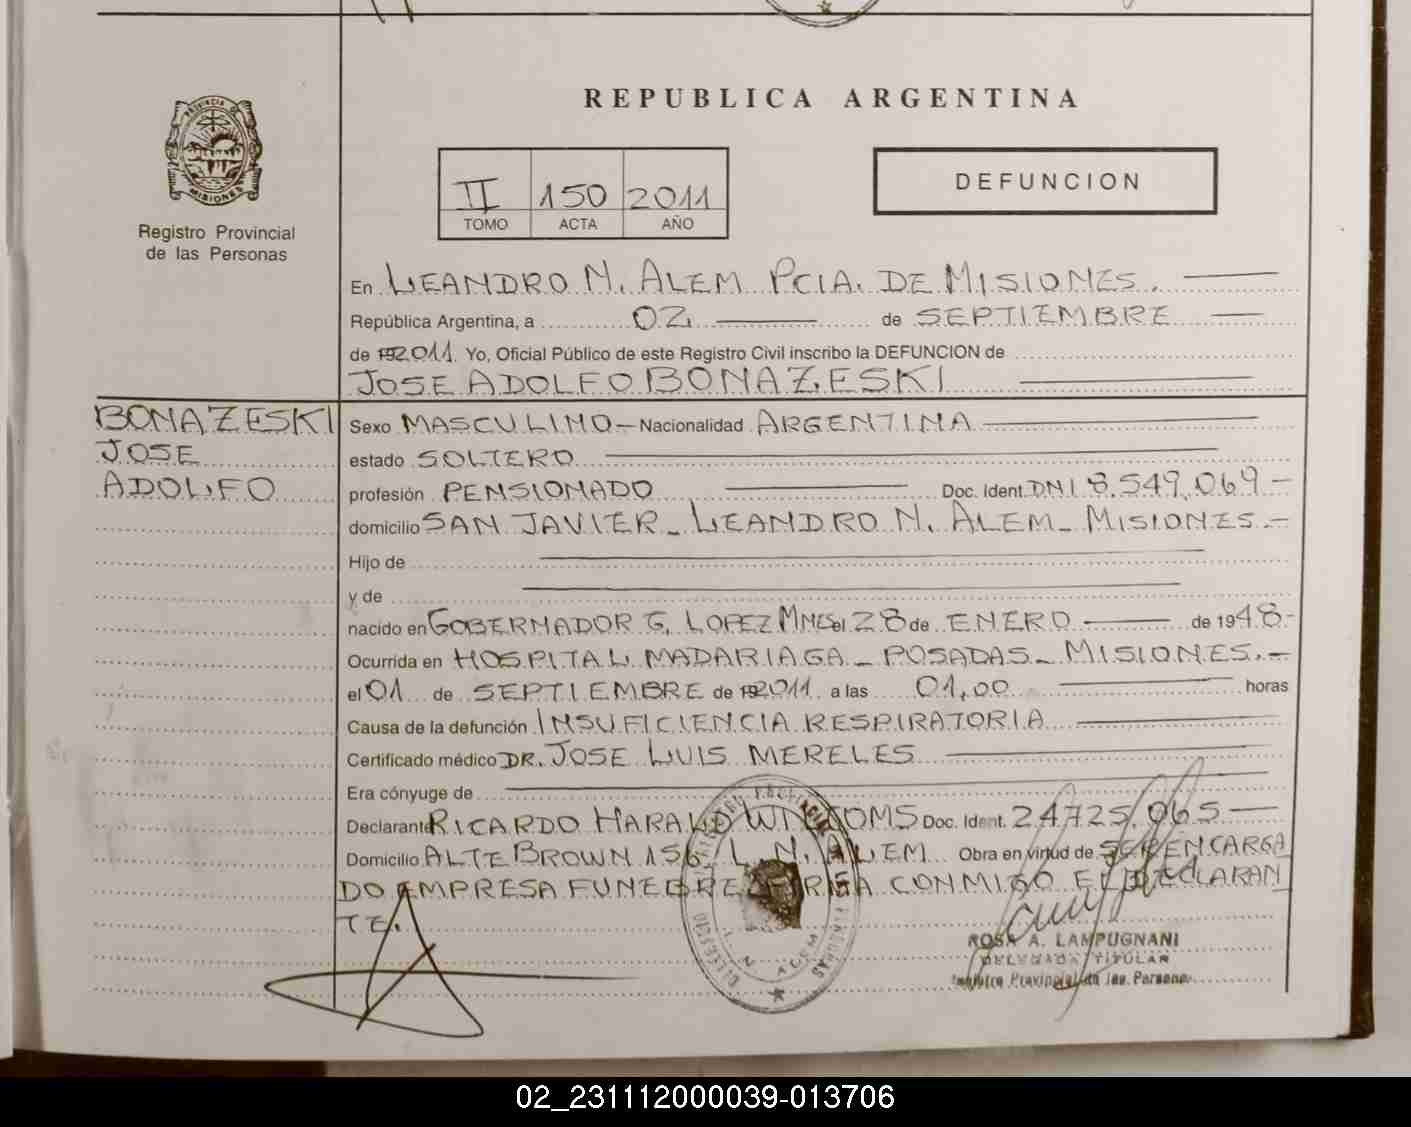 REPUBLICA ARGENTINA
PROVINCIA DE MISIONES
Registro Provincial
de las Personas
II 150 2011
TOMO ACTA AÑO
DEFUNCION
En LEANDRO N. ALEM PCIA. DE MISIONES.
República Argentina, a 02 de SEPTIEMBRE
de 2011. Yo, Oficial Público de este Registro Civil inscribo la DEFUNCION de
JOSE ADOLFO BONAZESKI
BONAZESKI
JOSE
ADOLFO
Sexo MASCULINO - Nacionalidad ARGENTINA
estado SOLTERO
profesión PENSIONADO Doc. Ident. DNI 8.549.069 -
domicilio SAN JAVIER - LEANDRO N. ALEM - MISIONES. -
Hijo de
y de
nacido en GOBERNADOR G. LOPEZ MNES el 28 de ENERO de 1948 -
Ocurrida en HOSPITAL MADARIAGA - POSADAS - MISIONES. -
el 01 de SEPTIEMBRE de 2011 a las 01,00 horas
Causa de la defunción INSUFICIENCIA RESPIRATORIA
Certificado médico DR. JOSE LUIS MERELES
Era cónyuge de
Declarante RICARDO HARALD Doc. Ident. 24.725.065
Domicilio ALTE BROWN 156 L. N. ALEM Obra en virtud de SER ENCARGA
DO EMPRESA FUNEBRE FIRMA CONMIGO EL DECLARAN
TE.
ROSA A. LAMPUGNANI
DELEGADA TITULAR
Registro Provincial de las Personas
02_231112000039-013706